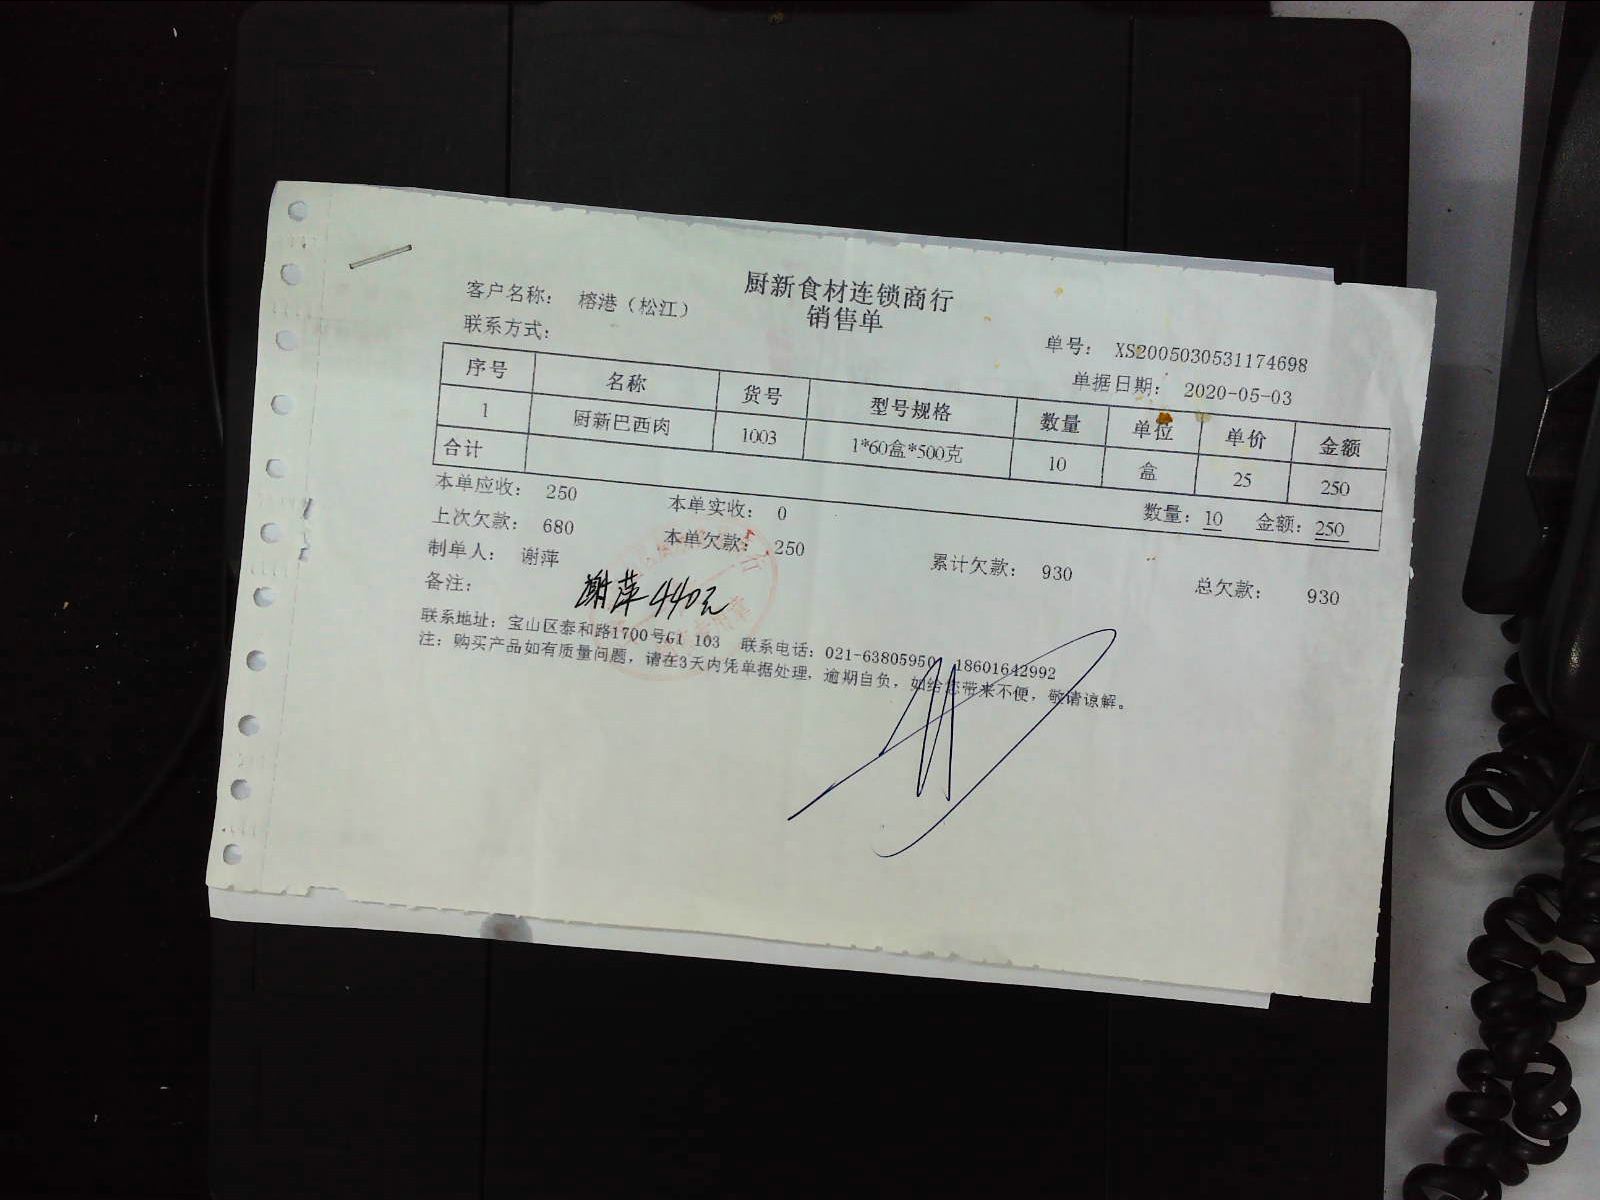 厨新食材连锁商行
销售单
客户名称： 榕港（松江）
联系方式：
单号： XS2005030531174698
单据日期： 2020-05-03
序号 名称 货号 型号规格 数量 单位 单价 金额
1 厨新巴西肉 1003 1*60盒*500克 10 盒 25 250
合计 数量：10 金额：250
本单应收： 250 本单实收： 0
上次欠款： 680 本单欠款： 250 累计欠款： 930 总欠款： 930
制单人： 谢萍
备注： 谢萍 440元
联系地址：宝山区泰和路1700号G1 103 联系电话：021-63805950 18601642992
注：购买产品如有质量问题，请在3天内凭单据处理，逾期自负，如给您带来不便，敬请谅解。